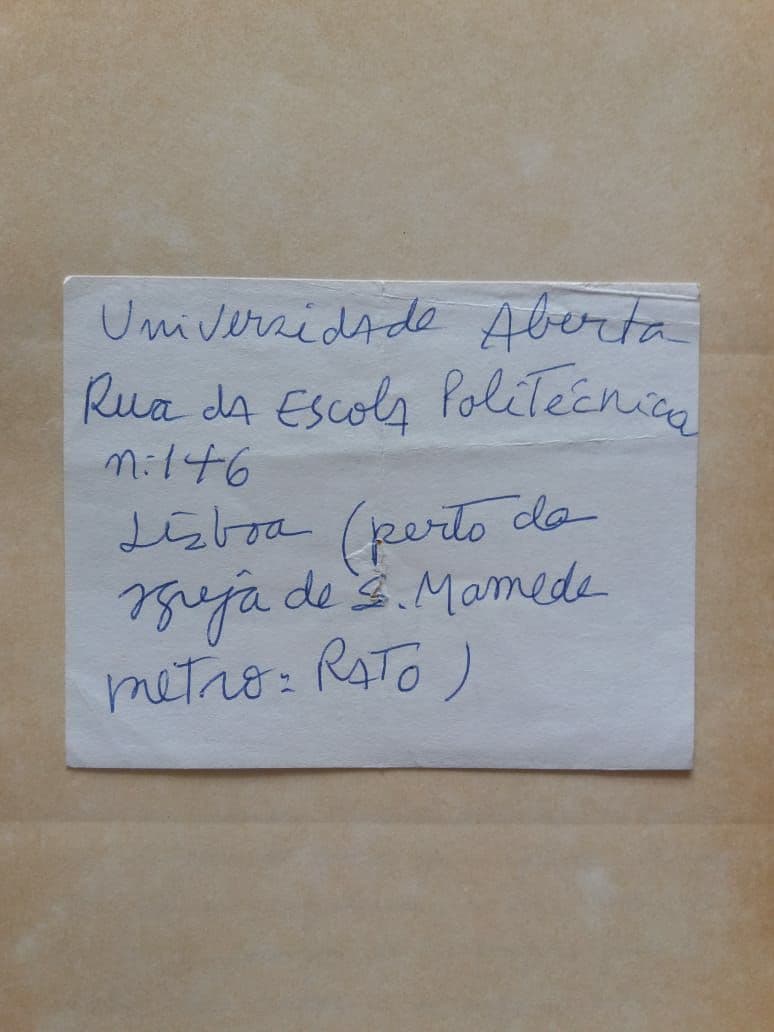 Universidade Aberta
Rua da Escola Politécnica
n: 146
Lisboa (perto da
igreja de S. Mamede
metro: RATO)